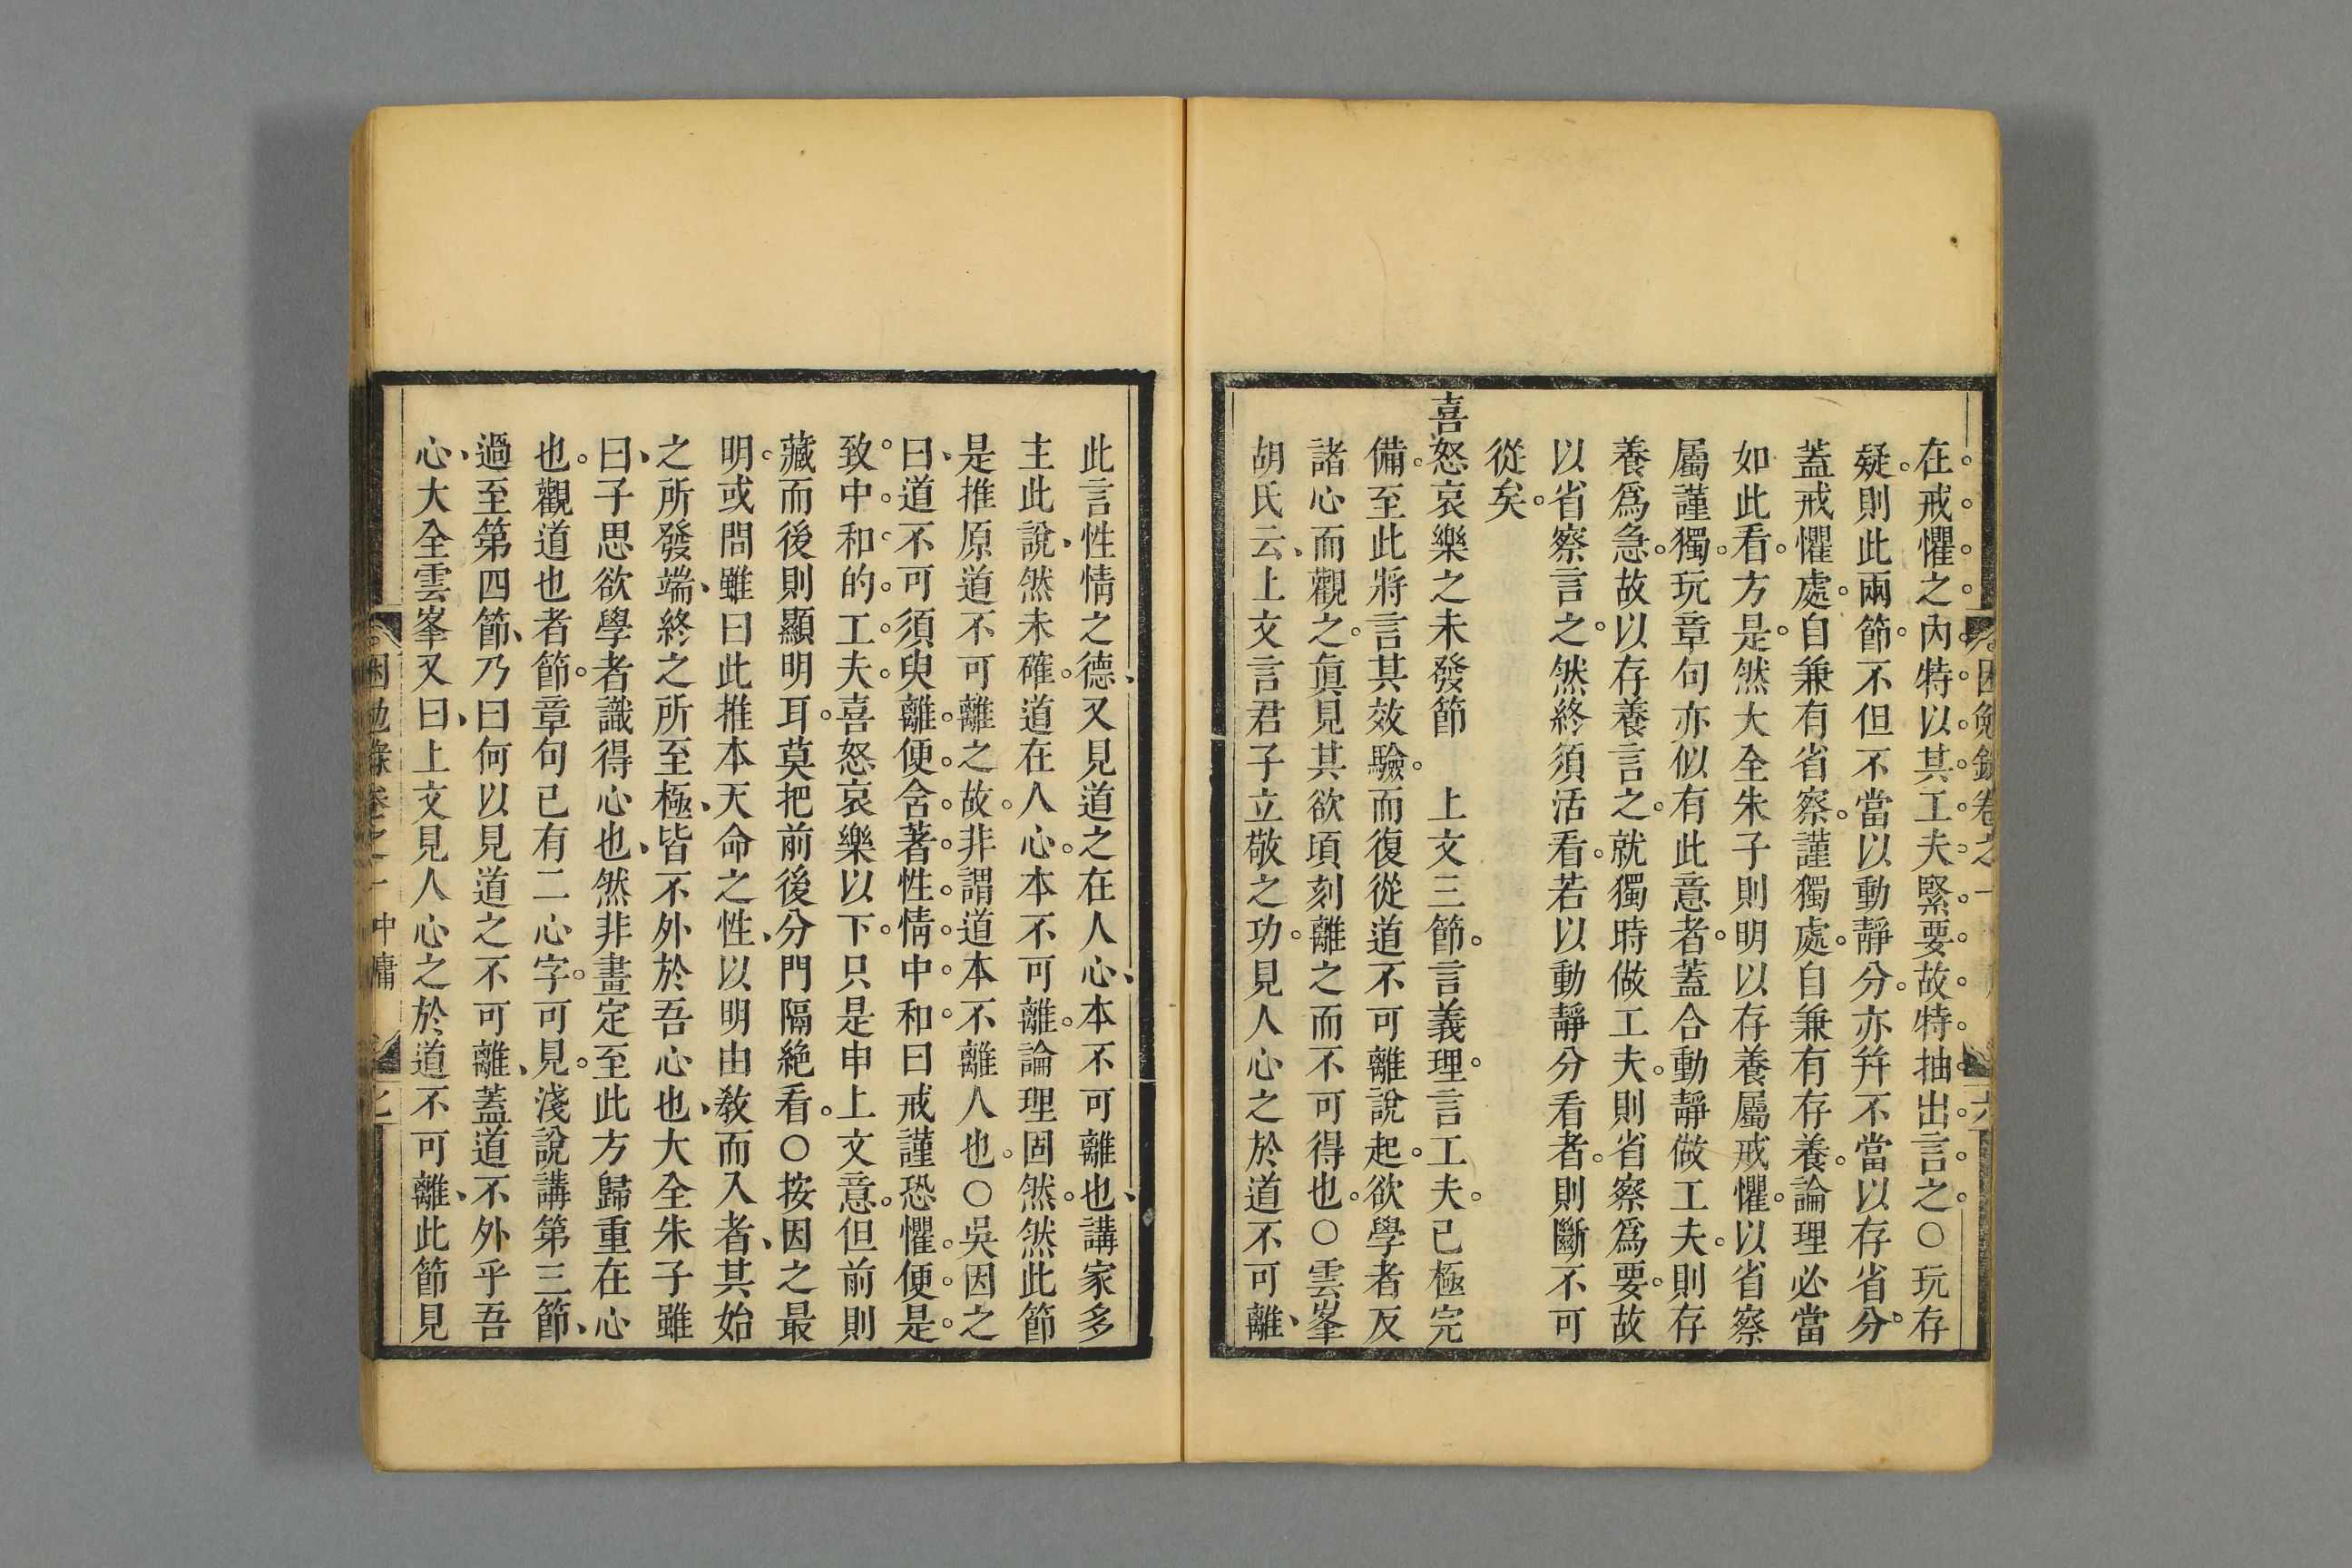 在戒懼之內特以其工夫緊要故特抽出言之○玩存
疑則此兩節不但不當以動靜分亦并不當以存省分
蓋戒懼處自兼有省察謹獨處自兼有存養論理必當
如此看方是然大全朱子則明以存養屬戒懼以省察
屬謹獨玩章句亦似有此意者蓋合動靜做工夫則存
養爲急故以存養言之就獨時做工夫則省察爲要故
以省察言之然終須活看若以動靜分看者則斷不可
從矣
喜怒哀樂之未發節　上文三節言義理言工夫已極完
備至此將言其效驗而復從道不可離說起欲學者反
諸心而觀之眞見其欲頃刻離之而不可得也○雲峯
胡氏云上文言君子立敬之功見人心之於道不可離
此言性情之德又見道之在人心本不可離也講家多
主此說然未確道在人心本不可離論理固然然此節
是推原道不可離之故非謂道本不離人也○吳因之
曰道不可須臾離便舍著性情中和曰戒謹恐懼便是
致中和的工夫喜怒哀樂以下只是申上文意但前則
藏而後則顯明耳莫把前後分門隔絶看○按因之最
明或問雖曰此推本天命之性以明由敎而入者其始
之所發端終之所至極皆不外於吾心也大全朱子雖
曰子思欲學者識得心也然非畫定至此方歸重在心
也觀道也者節章句已有二心字可見淺說講第三節
過至第四節乃曰何以見道之不可離蓋道不外乎吾
心大全雲峯又曰上文見人心之於道不可離此節見
困勉錄卷之一 中庸 七